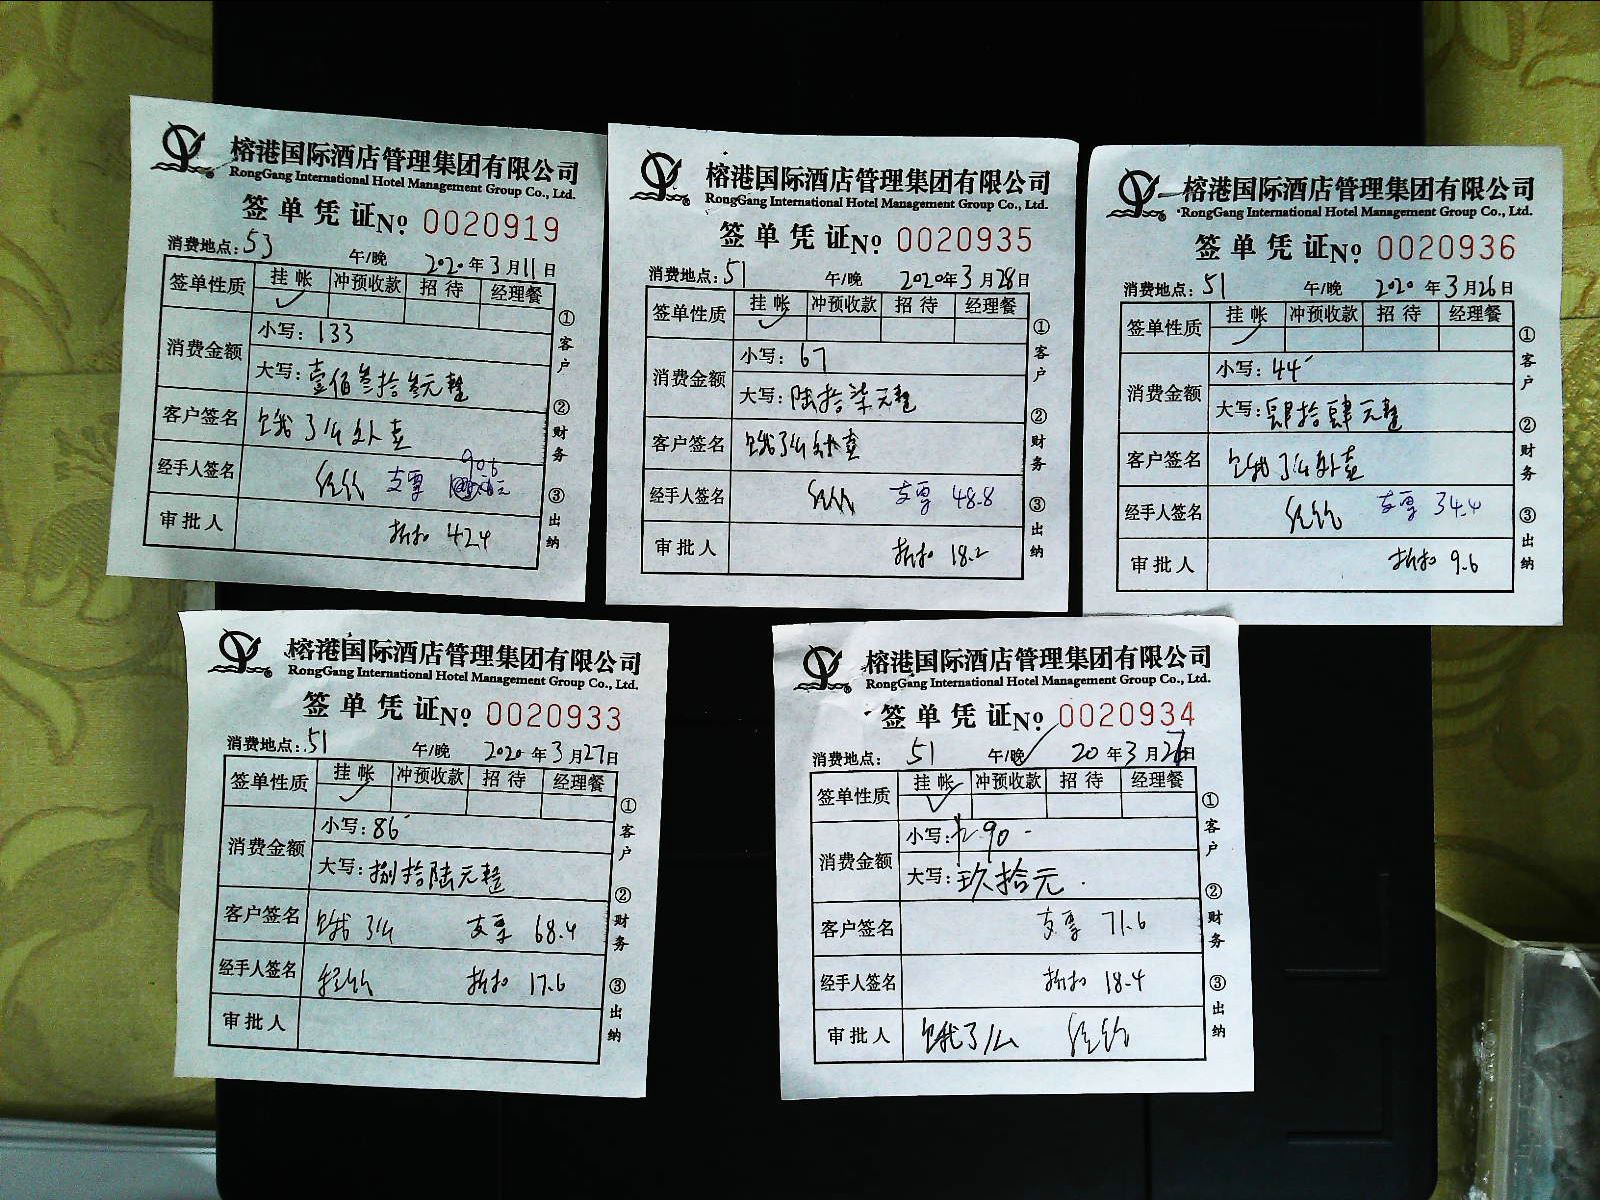 榕港国际酒店管理集团有限公司
RongGang International Hotel Management Group Co., Ltd.
签单凭证 No. 0020919
消费地点: 53 午/晚 2020年3月11日
签单性质 挂帐 冲预收款 招待 经理餐
✓
消费金额 小写: 133
大写: 壹佰叁拾叁元整
客户签名 饿了么外卖
经手人签名 支票 90.6
审批人 折扣 42.4
①客户 ②财务 ③出纳
榕港国际酒店管理集团有限公司
RongGang International Hotel Management Group Co., Ltd.
签单凭证 No. 0020935
消费地点: 51 午/晚 2020年3月28日
签单性质 挂帐 冲预收款 招待 经理餐
✓
消费金额 小写: 67
大写: 陆拾柒元整
客户签名 饿了么外卖
经手人签名 支票 48.8
审批人 折扣 18.2
①客户 ②财务 ③出纳
榕港国际酒店管理集团有限公司
RongGang International Hotel Management Group Co., Ltd.
签单凭证 No. 0020936
消费地点: 51 午/晚 2020年3月26日
签单性质 挂帐 冲预收款 招待 经理餐
✓
消费金额 小写: 44
大写: 肆拾肆元整
客户签名 饿了么外卖
经手人签名 支票 34.4
审批人 折扣 9.6
①客户 ②财务 ③出纳
榕港国际酒店管理集团有限公司
RongGang International Hotel Management Group Co., Ltd.
签单凭证 No. 0020933
消费地点: 51 午/晚 2020年3月27日
签单性质 挂帐 冲预收款 招待 经理餐
✓
消费金额 小写: 86
大写: 捌拾陆元整
客户签名 饿了么 支票 68.4
经手人签名 折扣 17.6
审批人
①客户 ②财务 ③出纳
榕港国际酒店管理集团有限公司
RongGang International Hotel Management Group Co., Ltd.
签单凭证 No. 0020934
消费地点: 51 午/晚 ✓ 20年3月日
签单性质 挂帐 冲预收款 招待 经理餐
✓
消费金额 小写: 90-
大写: 玖拾元.
客户签名 支票 71.6
经手人签名 折扣 18.4
审批人 饿了么
①客户 ②财务 ③出纳